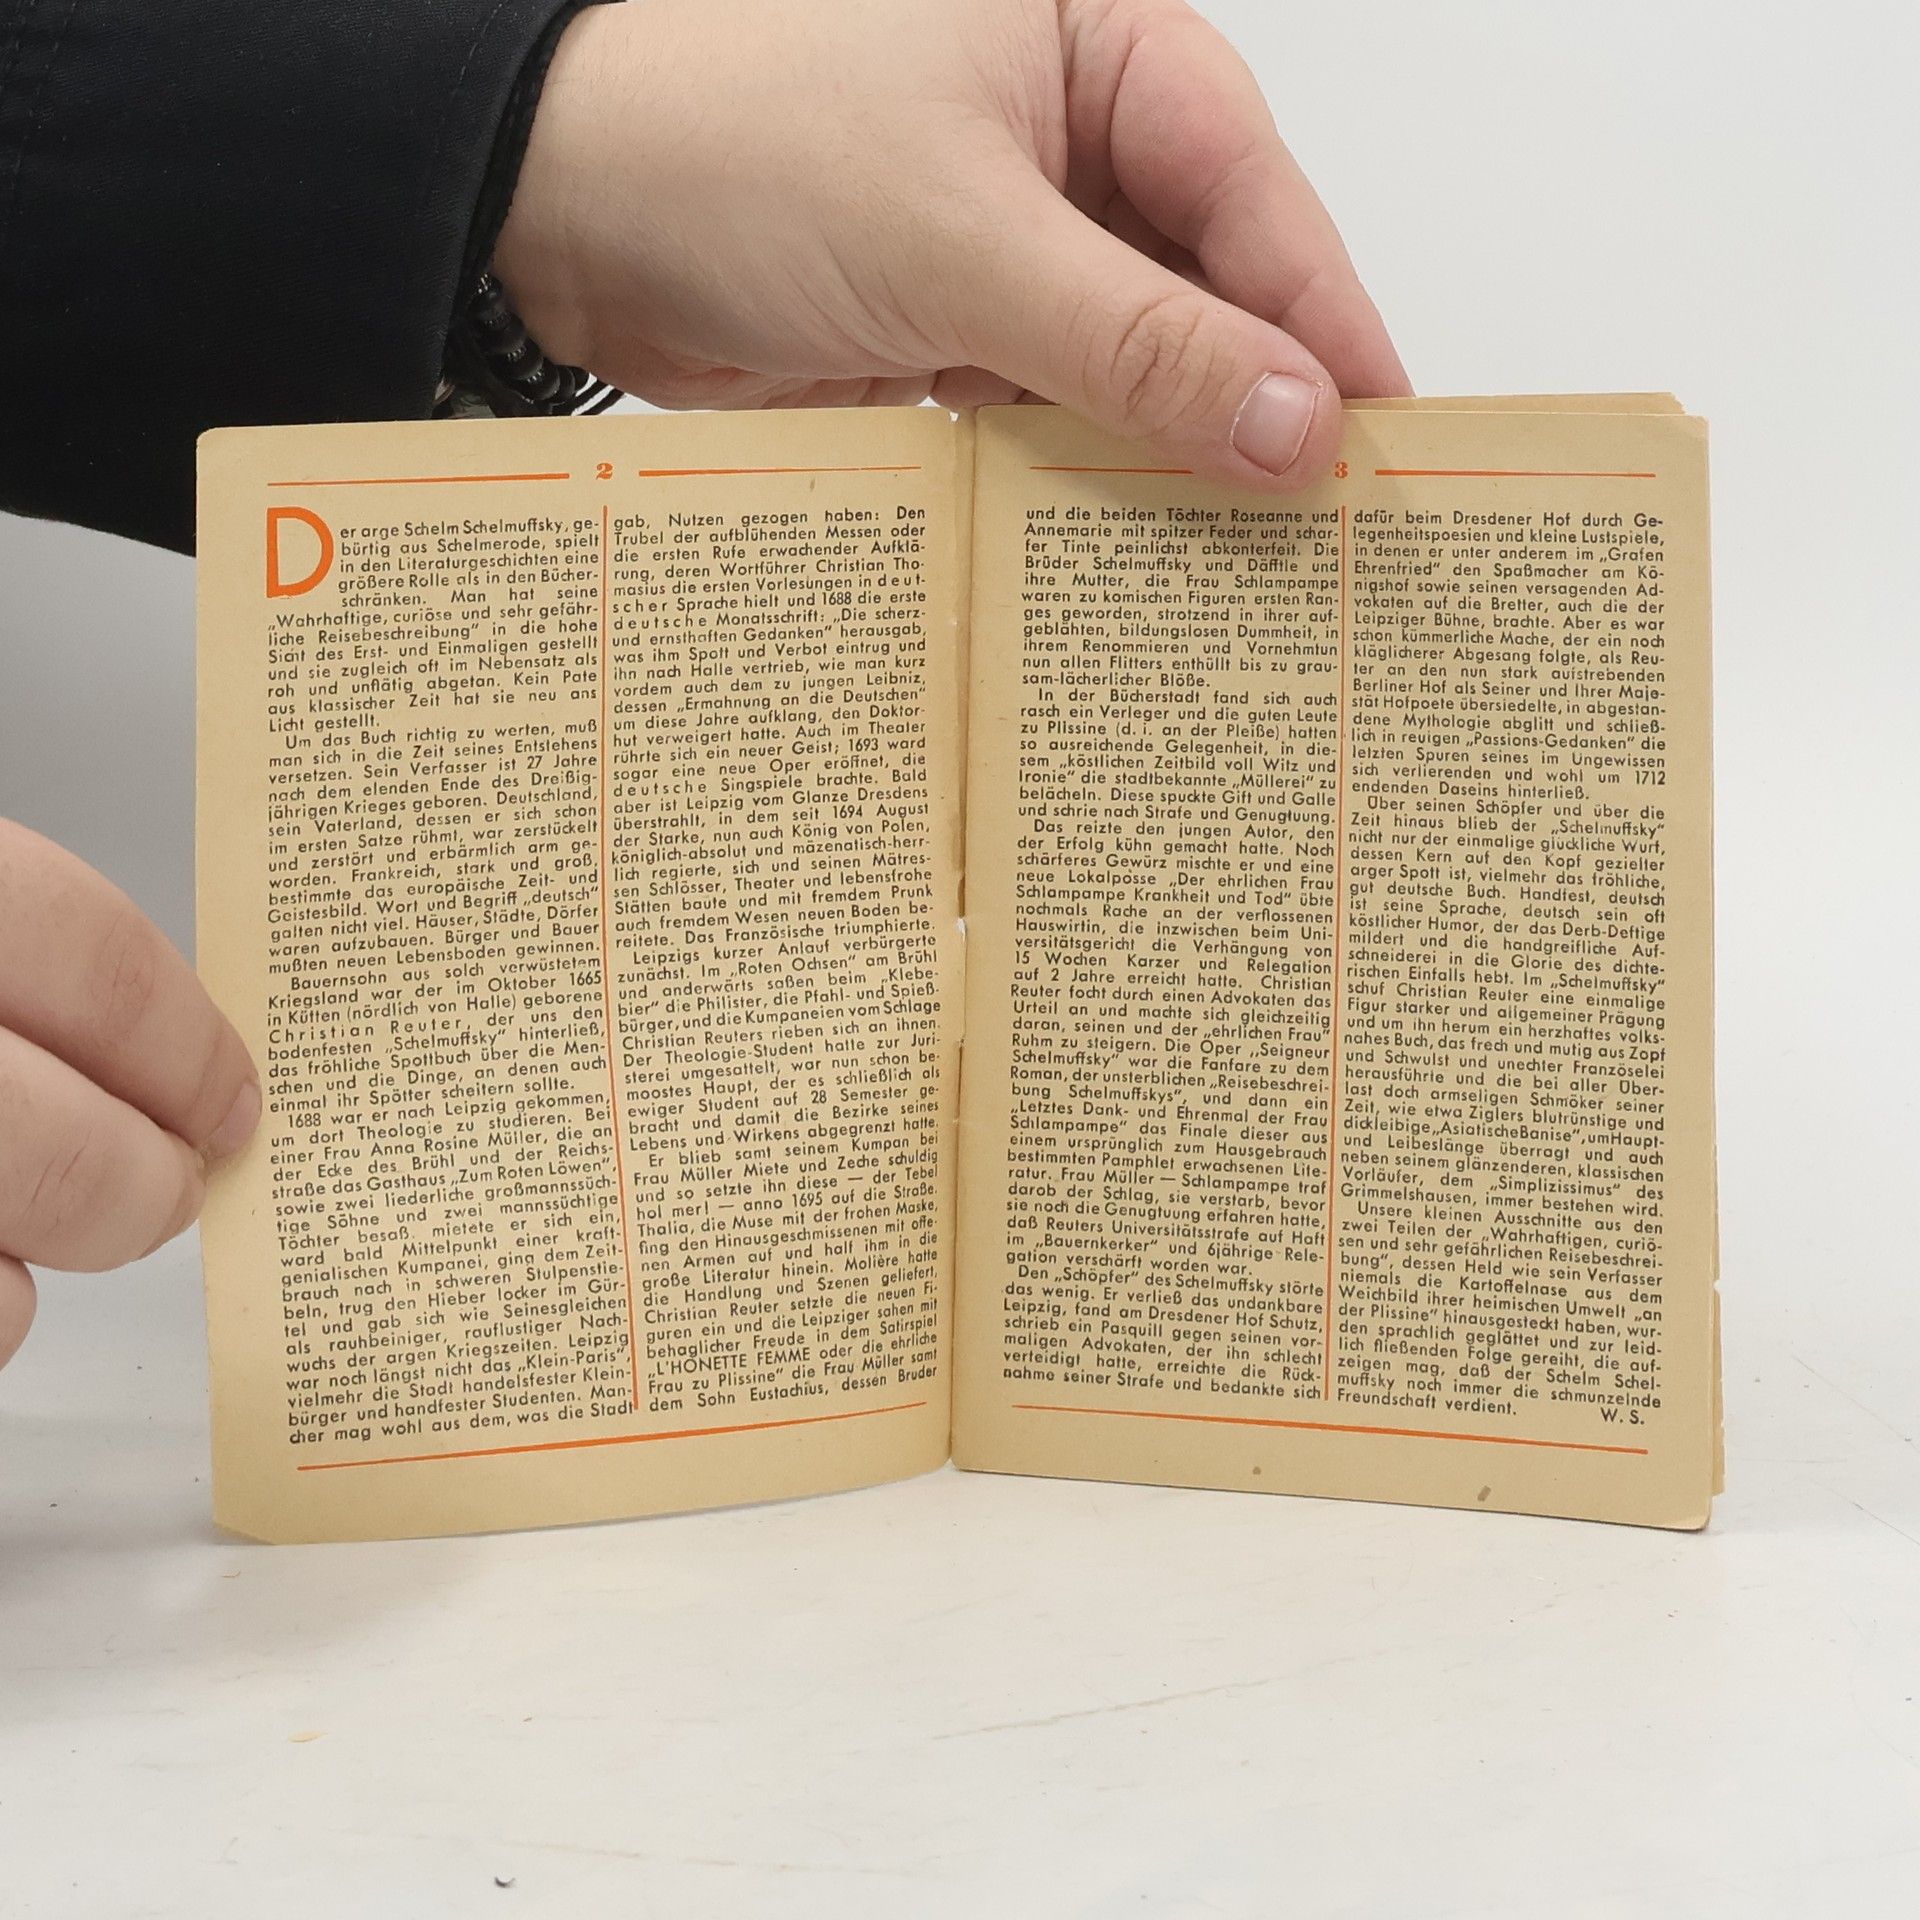 2
Der arge Schelm Schelmuffsky, ge-
bürtig aus Schelmerode, spielt
in den Literaturgeschichten eine
größere Rolle als in den Bücher-
schränken. Man hat seine
„Wahrhaftige, curiöse und sehr gefähr-
liche Reisebeschreibung“ in die hohe
Sicht des Erst- und Einmaligen gestellt
und sie zugleich oft im Nebensatz als
roh und unflätig abgetan. Kein Pate
aus klassischer Zeit hat sie neu ans
Licht gestellt.
Um das Buch richtig zu werten, muß
man sich in die Zeit seines Entstehens
versetzen. Sein Verfasser ist 27 Jahre
nach dem elenden Ende des Dreißig-
jährigen Krieges geboren. Deutschland,
sein Vaterland, dessen er sich schon
im ersten Satze rühmt, war zerstückelt
und zerstört und erbärmlich arm ge-
worden. Frankreich, stark und groß,
bestimmte das europäische Zeit- und
Geistesbild. Wort und Begriff „deutsch“
galten nicht viel. Häuser, Städte, Dörfer
waren aufzubauen. Bürger und Bauer
mußten neuen Lebensboden gewinnen.
Bauernsohn aus solch verwüstetem
Kriegsland war der im Oktober 1665
in Kütten (nördlich von Halle) geborene
Christian Reuter, der uns den
bodenfesten „Schelmuffsky“ hinterließ,
das fröhliche Spottbuch über die Men-
schen und die Dinge, an denen auch
einmal ihr Spötter scheitern sollte.
1688 war er nach Leipzig gekommen,
um dort Theologie zu studieren. Bei
einer Frau Anna Rosine Müller, die an
der Ecke des Brühl und der Reichs-
straße das Gasthaus „Zum Roten Löwen“,
sowie zwei liederliche großmannssüch-
tige Söhne und zwei mannssüchtige
Töchter besaß, mietete er sich ein,
ward bald Mittelpunkt einer kraft-
genialischen Kumpanei, ging dem Zeit-
brauch nach in schweren Stulpenstie-
beln, trug den Hieber locker im Gür-
tel und gab sich wie Seinesgleichen
als rauhbeiniger, rauflustiger Nach-
wuchs der argen Kriegszeiten. Leipzig
war noch längst nicht das „Klein-Paris“,
vielmehr die Stadt handelsfester Klein-
bürger und handfester Studenten. Man-
cher mag wohl aus dem, was die Stadt
gab, Nutzen gezogen haben: Den
Trubel der aufblühenden Messen oder
die ersten Rufe erwachender Aufklä-
rung, deren Wortführer Christian Tho-
masius die ersten Vorlesungen in deut-
scher Sprache hielt und 1688 die erste
deutsche Monatsschrift: „Die scherz-
und ernsthaften Gedanken“ herausgab,
was ihm Spott und Verbot eintrug und
ihn nach Halle vertrieb, wie man kurz
vordem auch dem zu jungen Leibniz,
dessen „Ermahnung an die Deutschen“
um diese Jahre aufklang, den Doktor-
hut verweigert hatte. Auch im Theater
rührte sich ein neuer Geist; 1693 ward
sogar eine neue Oper eröffnet, die
deutsche Singspiele brachte. Bald
aber ist Leipzig vom Glanze Dresdens
überstrahlt, in dem seit 1694 August
der Starke, nun auch König von Polen,
königlich-absolut und mäzenatisch-herr-
lich regierte, sich und seinen Mätres-
sen Schlösser, Theater und lebensfrohe
Stätten baute und mit fremdem Prunk
auch fremdem Wesen neuen Boden be-
reitete. Das Französische triumphierte.
Leipzigs kurzer Anlauf verbürgerte
zunächst. Im „Roten Ochsen“ am Brühl
und anderwärts saßen beim „Klebe-
bier“ die Philister, die Pfahl- und Spieß-
bürger, und die Kumpaneien vom Schlage
Christian Reuters rieben sich an ihnen.
Der Theologie-Student hatte zur Juri-
sterei umgesattelt, war nun schon be-
moostes Haupt, der es schließlich als
ewiger Student auf 28 Semester ge-
bracht und damit die Bezirke seines
Lebens und Wirkens abgegrenzt hatte.
Er blieb samt seinem Kumpan bei
Frau Müller Miete und Zeche schuldig
und so setzte ihn diese — der Tebel
hol mer! — anno 1695 auf die Straße.
Thalia, die Muse mit der frohen Maske,
fing den Hinausgeschmissenen mit offe-
nen Armen auf und half ihm in die
große Literatur hinein. Molière hatte
die Handlung und Szenen geliefert,
Christian Reuter setzte die neuen Fi-
guren ein und die Leipziger sahen mit
behaglicher Freude in dem Satirspiel
„L'HONETTE FEMME oder die ehrliche
Frau zu Plissine“ die Frau Müller samt
dem Sohn Eustachius, dessen Bruder
3
und die beiden Töchter Roseanne und
Annemarie mit spitzer Feder und schar-
fer Tinte peinlichst abkonterfeit. Die
Brüder Schelmuffsky und Däfftle und
ihre Mutter, die Frau Schlampampe
waren zu komischen Figuren ersten Ran-
ges geworden, strotzend in ihrer auf-
geblähten, bildungslosen Dummheit, in
ihrem Renommieren und Vornehmtun
nun allen Flitters enthüllt bis zu grau-
sam-lächerlicher Blöße.
In der Bücherstadt fand sich auch
rasch ein Verleger und die guten Leute
zu Plissine (d. i. an der Pleiße) hatten
so ausreichende Gelegenheit, in die-
sem „köstlichen Zeitbild voll Witz und
Ironie“ die stadtbekannte „Müllerei“ zu
belächeln. Diese spuckte Gift und Galle
und schrie nach Strafe und Genugtuung.
Das reizte den jungen Autor, den
der Erfolg kühn gemacht hatte. Noch
schärferes Gewürz mischte er und eine
neue Lokalposse „Der ehrlichen Frau
Schlampampe Krankheit und Tod“ übte
nochmals Rache an der verflossenen
Hauswirtin, die inzwischen beim Uni-
versitätsgericht die Verhängung von
15 Wochen Karzer und Relegation
auf 2 Jahre erreicht hatte. Christian
Reuter focht durch einen Advokaten das
Urteil an und machte sich gleichzeitig
daran, seinen und der „ehrlichen Frau“
Ruhm zu steigern. Die Oper „Seigneur
Schelmuffsky“ war die Fanfare zu dem
Roman, der unsterblichen „Reisebeschrei-
bung Schelmuffskys“, und dann ein
„Letztes Dank- und Ehrenmal der Frau
Schlampampe“ das Finale dieser aus
einem ursprünglich zum Hausgebrauch
bestimmten Pamphlet erwachsenen Lite-
ratur. Frau Müller — Schlampampe traf
darob der Schlag, sie verstarb, bevor
sie noch die Genugtuung erfahren hatte,
daß Reuters Universitätsstrafe auf Haft
im „Bauernkerker“ und 6jährige Rele-
gation verschärft worden war.
Den „Schöpfer“ des Schelmuffsky störte
das wenig. Er verließ das undankbare
Leipzig, fand am Dresdener Hof Schutz,
schrieb ein Pasquill gegen seinen vor-
maligen Advokaten, der ihn schlecht
verteidigt hatte, erreichte die Rück-
nahme seiner Strafe und bedankte sich
dafür beim Dresdener Hof durch Ge-
legenheitspoesien und kleine Lustspiele,
in denen er unter anderem im „Grafen
Ehrenfried“ den Spaßmacher am Kö-
nigshof sowie seinen versagenden Ad-
vokaten auf die Bretter, auch die der
Leipziger Bühne, brachte. Aber es war
schon kümmerliche Mache, der ein noch
kläglicherer Abgesang folgte, als Reu-
ter an den nun stark aufstrebenden
Berliner Hof als Seiner und Ihrer Maje-
stät Hofpoete übersiedelte, in abgestan-
dene Mythologie abglitt und schließ-
lich in reuigen „Passions-Gedanken“ die
letzten Spuren seines im Ungewissen
sich verlierenden und wohl um 1712
endenden Daseins hinterließ.
Über seinen Schöpfer und über die
Zeit hinaus blieb der „Schelmuffsky“
nicht nur der einmalige glückliche Wurf,
dessen Kern auf den Kopf gezielter
arger Spott ist, vielmehr das fröhliche,
gut deutsche Buch. Handfest, deutsch
ist seine Sprache, deutsch sein oft
köstlicher Humor, der das Derb-Deftige
mildert und die handgreifliche Auf-
schneiderei in die Glorie des dichte-
rischen Einfalls hebt. Im „Schelmuffsky“
schuf Christian Reuter eine einmalige
Figur starker und allgemeiner Prägung
und um ihn herum ein herzhaftes volks-
nahes Buch, das frech und mutig aus Zopf
und Schwulst und unechter Französelei
herausführte und die bei aller Über-
last doch armseligen Schmöker seiner
Zeit, wie etwa Ziglers blutrünstige und
dickleibige „Asiatische Banise“, um Haupt-
und Leibeslänge überragt und auch
neben seinem glänzenderen, klassischen
Vorläufer, dem „Simplizissimus“ des
Grimmelshausen, immer bestehen wird.
Unsere kleinen Ausschnitte aus den
zwei Teilen der „Wahrhaftigen, curiö-
sen und sehr gefährlichen Reisebeschrei-
bung“, dessen Held wie sein Verfasser
niemals die Kartoffelnase aus dem
Weichbild ihrer heimischen Umwelt „an
der Plissine“ hinausgesteckt haben, wur-
den sprachlich geglättet und zur leid-
lich fließenden Folge gereiht, die auf-
zeigen mag, daß der Schelm Schel-
muffsky noch immer die schmunzelnde
Freundschaft verdient.
W. S.